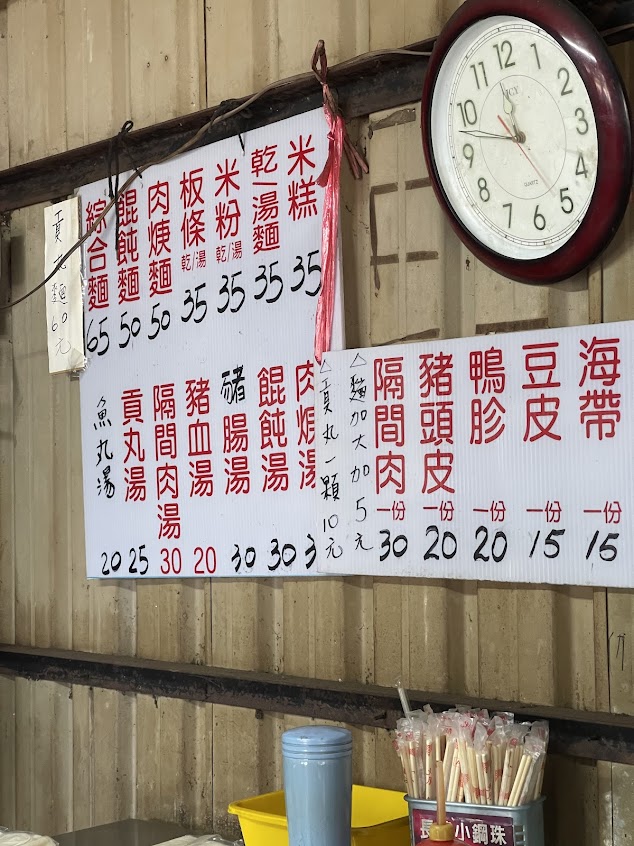 米糕 35
乾/湯麵 35
米粉 乾/湯 35
板條 乾/湯 35
肉焿麵 50
餛飩麵 50
綜合麵 65
肉焿湯 3
餛飩湯 30
豬腸湯 30
豬血湯 20
隔間肉湯 30
貢丸湯 25
魚丸湯 20
貢丸麵60元
海帶 一份 15
豆皮 一份 15
鴨胗 一份 20
豬頭皮 一份 20
隔間肉 一份 30
△麵加大加5元
△貢丸一顆10元
12
1
2
3
4
5
6
7
8
9
10
11
QUARTZ
小鋼珠